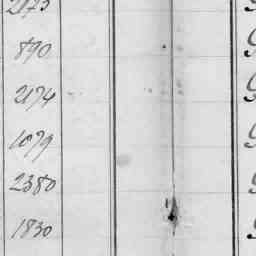 2173
890
2174
1079
2380
1830